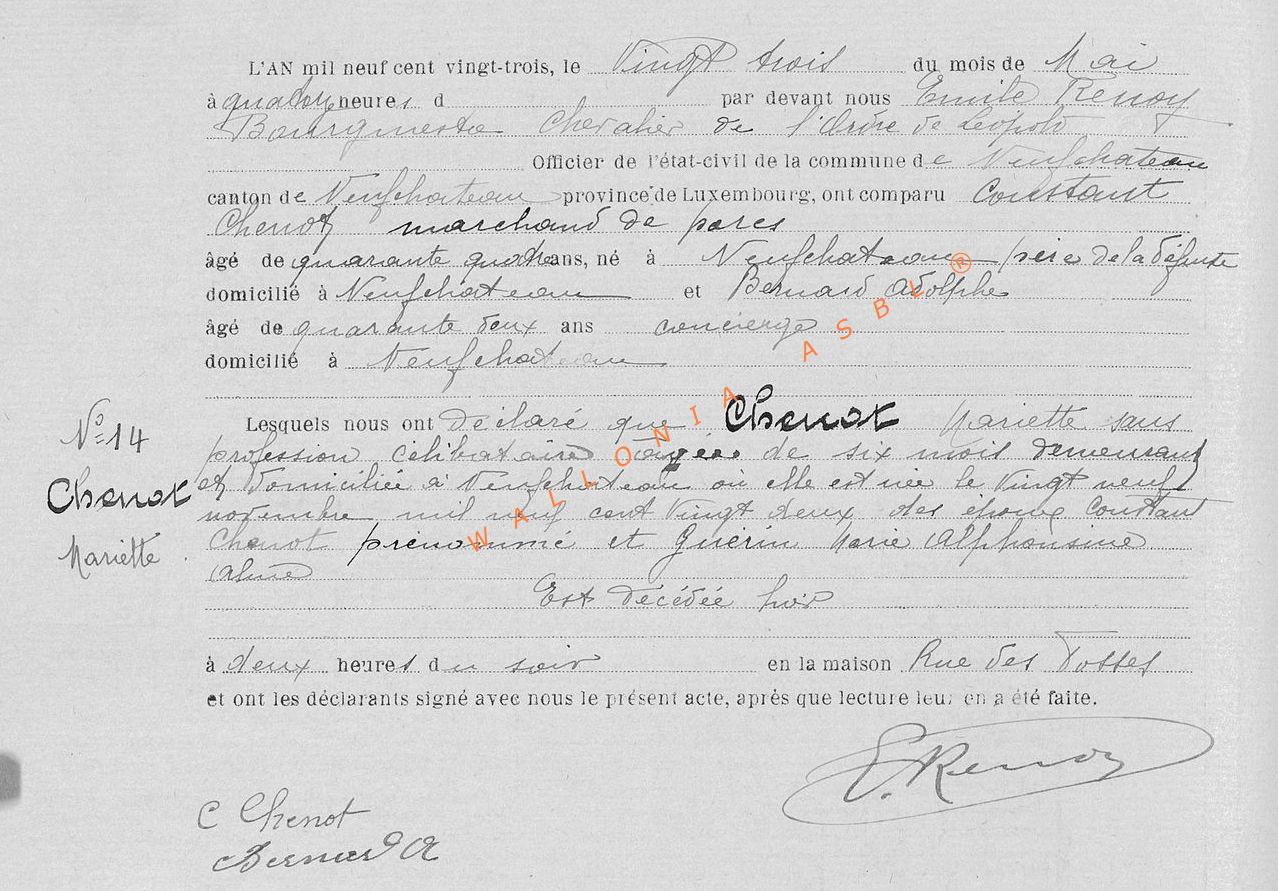 L'AN mil neuf cent vingt-trois, le Vingt trois du mois de Mai
à quatorze heures d par devant nous Emile Renoy
Bourgmestre Chevalier de l'Ordre de Léopold
Officier de l'état-civil de la commune de Neufchateau
canton de Neufchateau province de Luxembourg, ont comparu Constant
Chenot marchand de porcs
âgé de quarante quatre ans, né à Neufchateau père de la défunte
domicilié à Neufchateau et Bernard Adolphe
âgé de quarante deux ans concierge
domicilié à Neufchateau
Lesquels nous ont déclaré que Chenot Mariette sans
profession célibataire âgée de six mois demeurant
et domiciliée à Neufchateau où elle est née le vingt neuf
novembre mil neuf cent vingt deux des époux Constant
Chenot prénommé et Guérin Marie Alphonsine
Aline
Est décédée hier
à deux heures du soir en la maison Rue des Fosses
et ont les déclarants signé avec nous le présent acte, après que lecture leur en a été faite.
N° 14
Chenot
Mariette
E. Renoy
C Chenot
Bernard A
WALLONIA ASBL ®